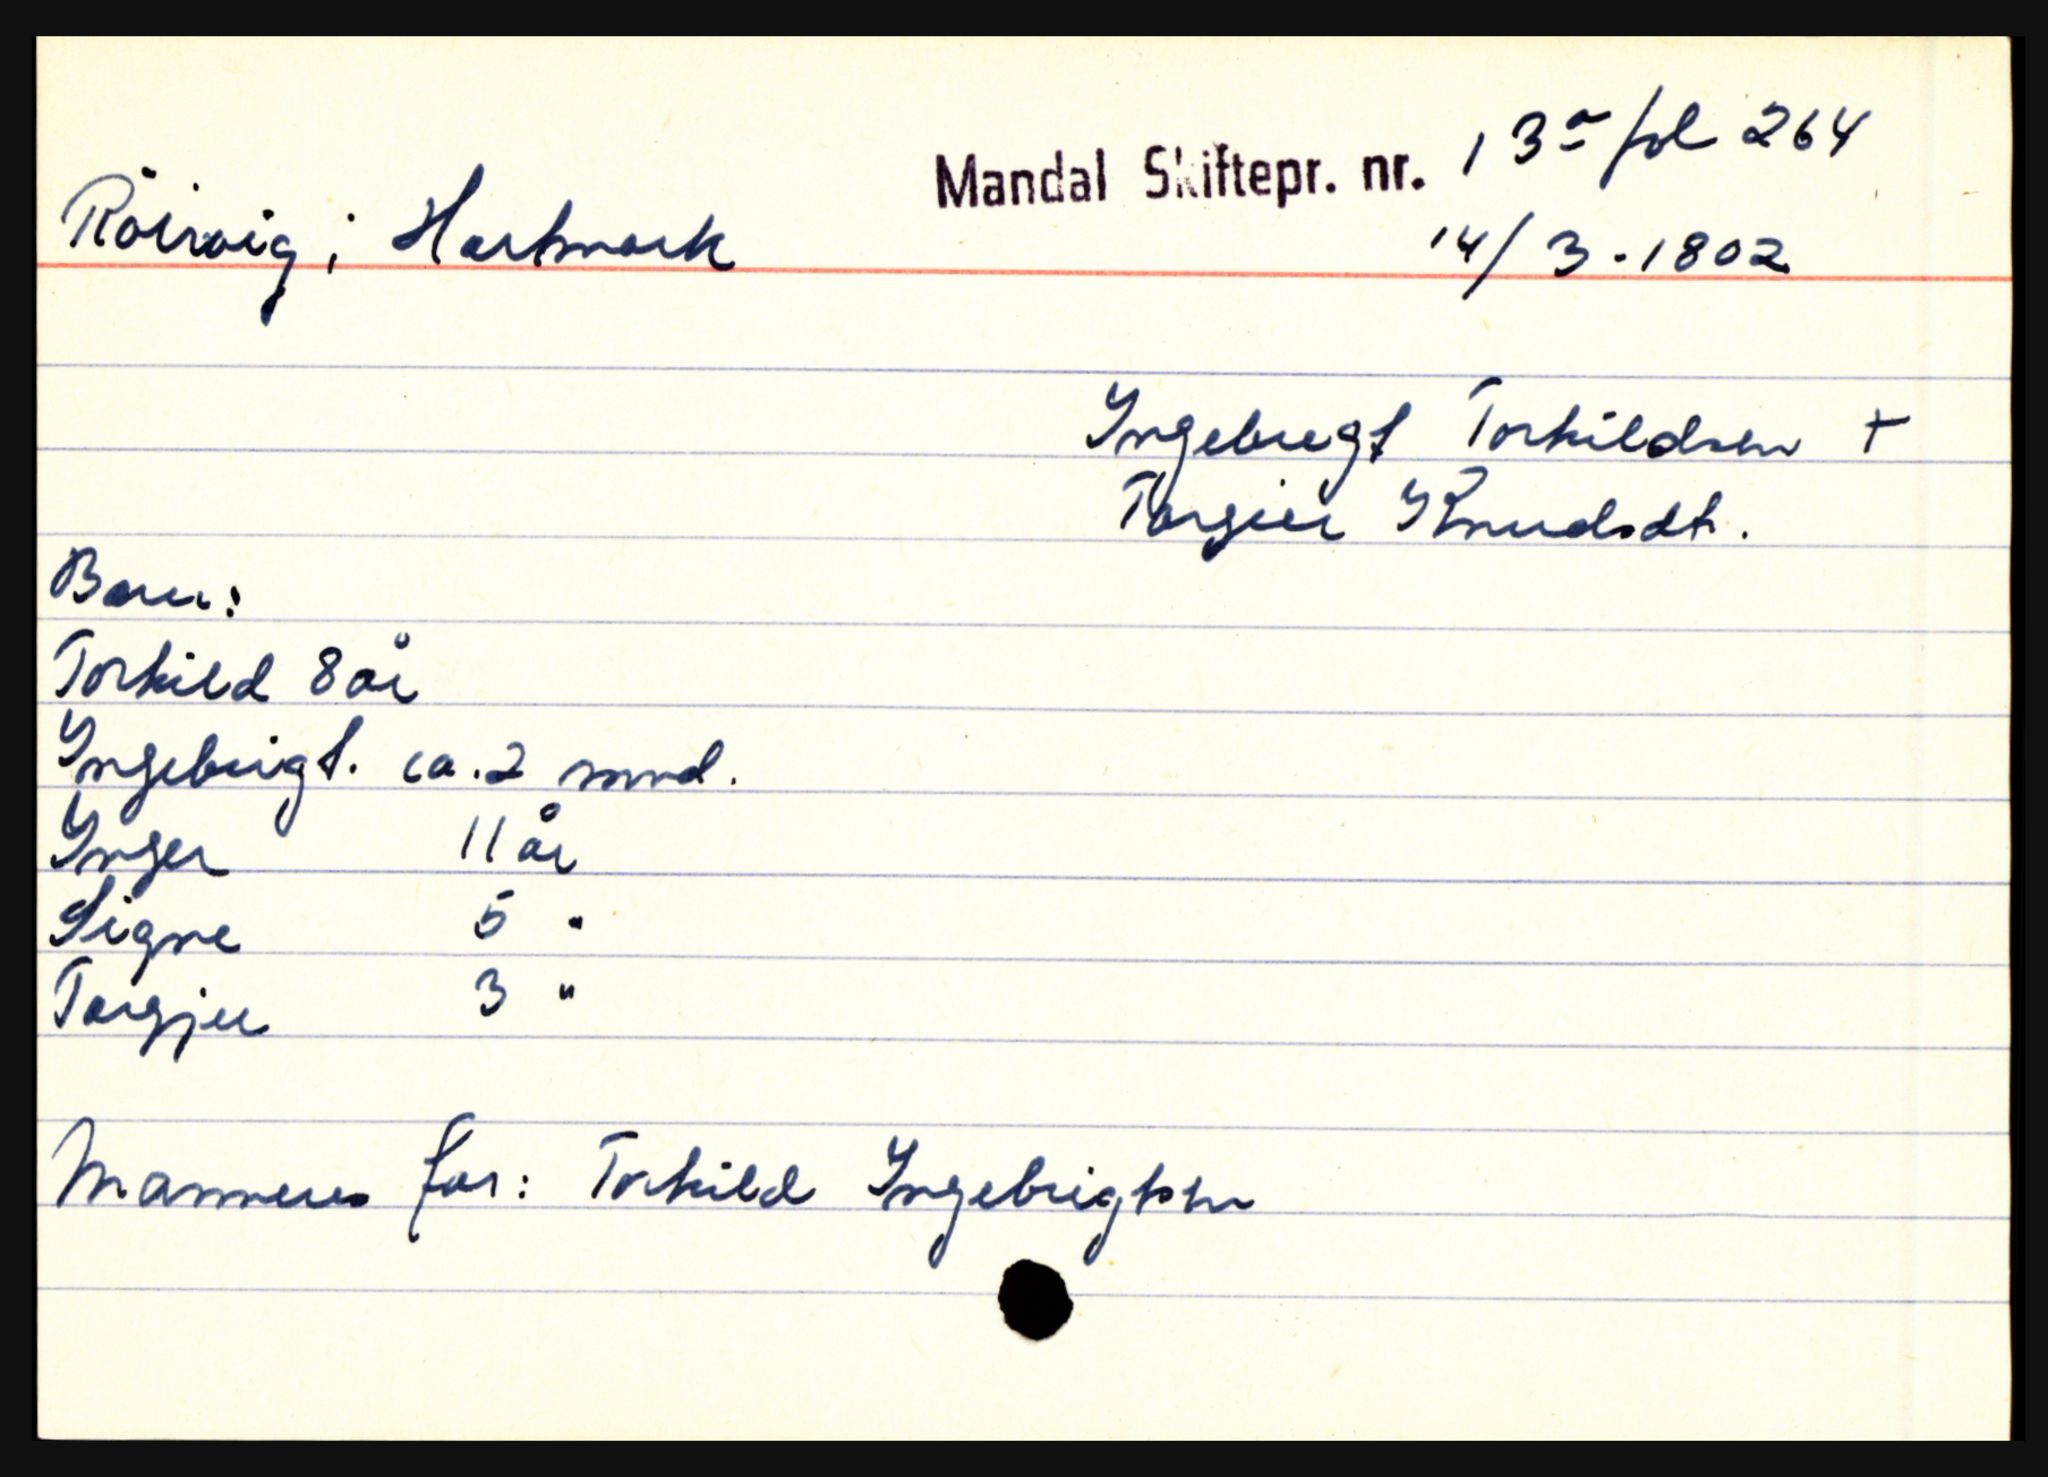 Mandal Skiftepr. nr. 13a fol 264
Röirvig i Hartmark 14/3-1802
Ingebregt Torkildsen +
Torgier Knudsdt.
Barn:
Torkild 8 år
Ingebrigt. ca. 2 mnd.
Inger 11 år
Signe 5 "
Torgjer 3 "
Mannens far: Torkild Ingebrigtsen